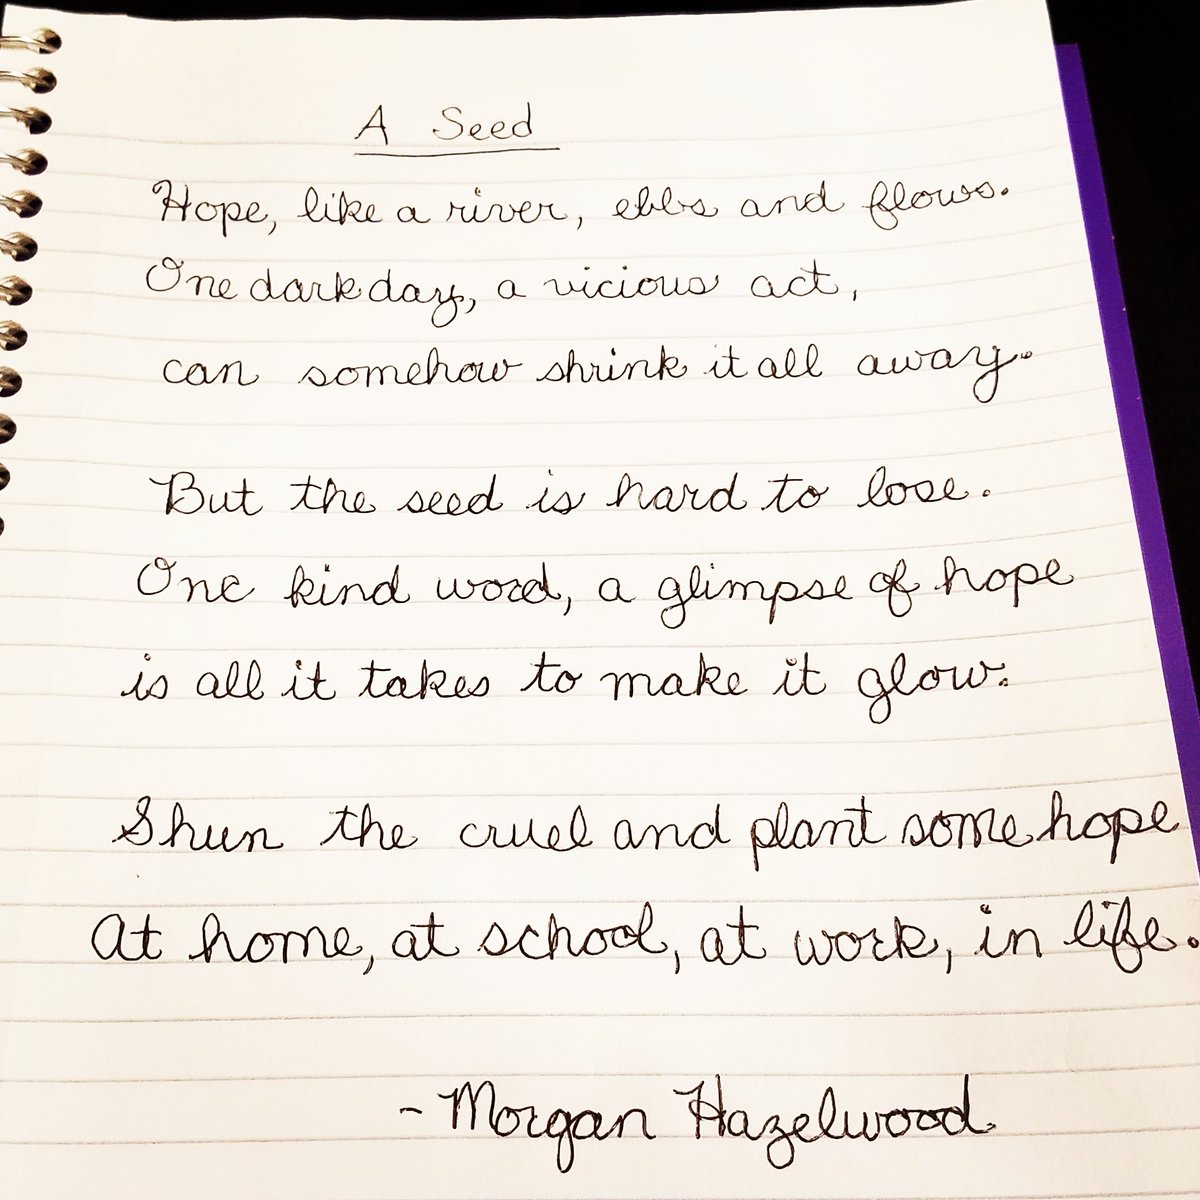 A Seed
Hope, like a river, ebbs and flows.
One dark day, a vicious act,
can somehow shrink it all away.
But the seed is hard to lose.
One kind word, a glimpse of hope
is all it takes to make it glow.
Shun the cruel and plant some hope
At home, at school, at work, in life.
- Morgan Hazelwood